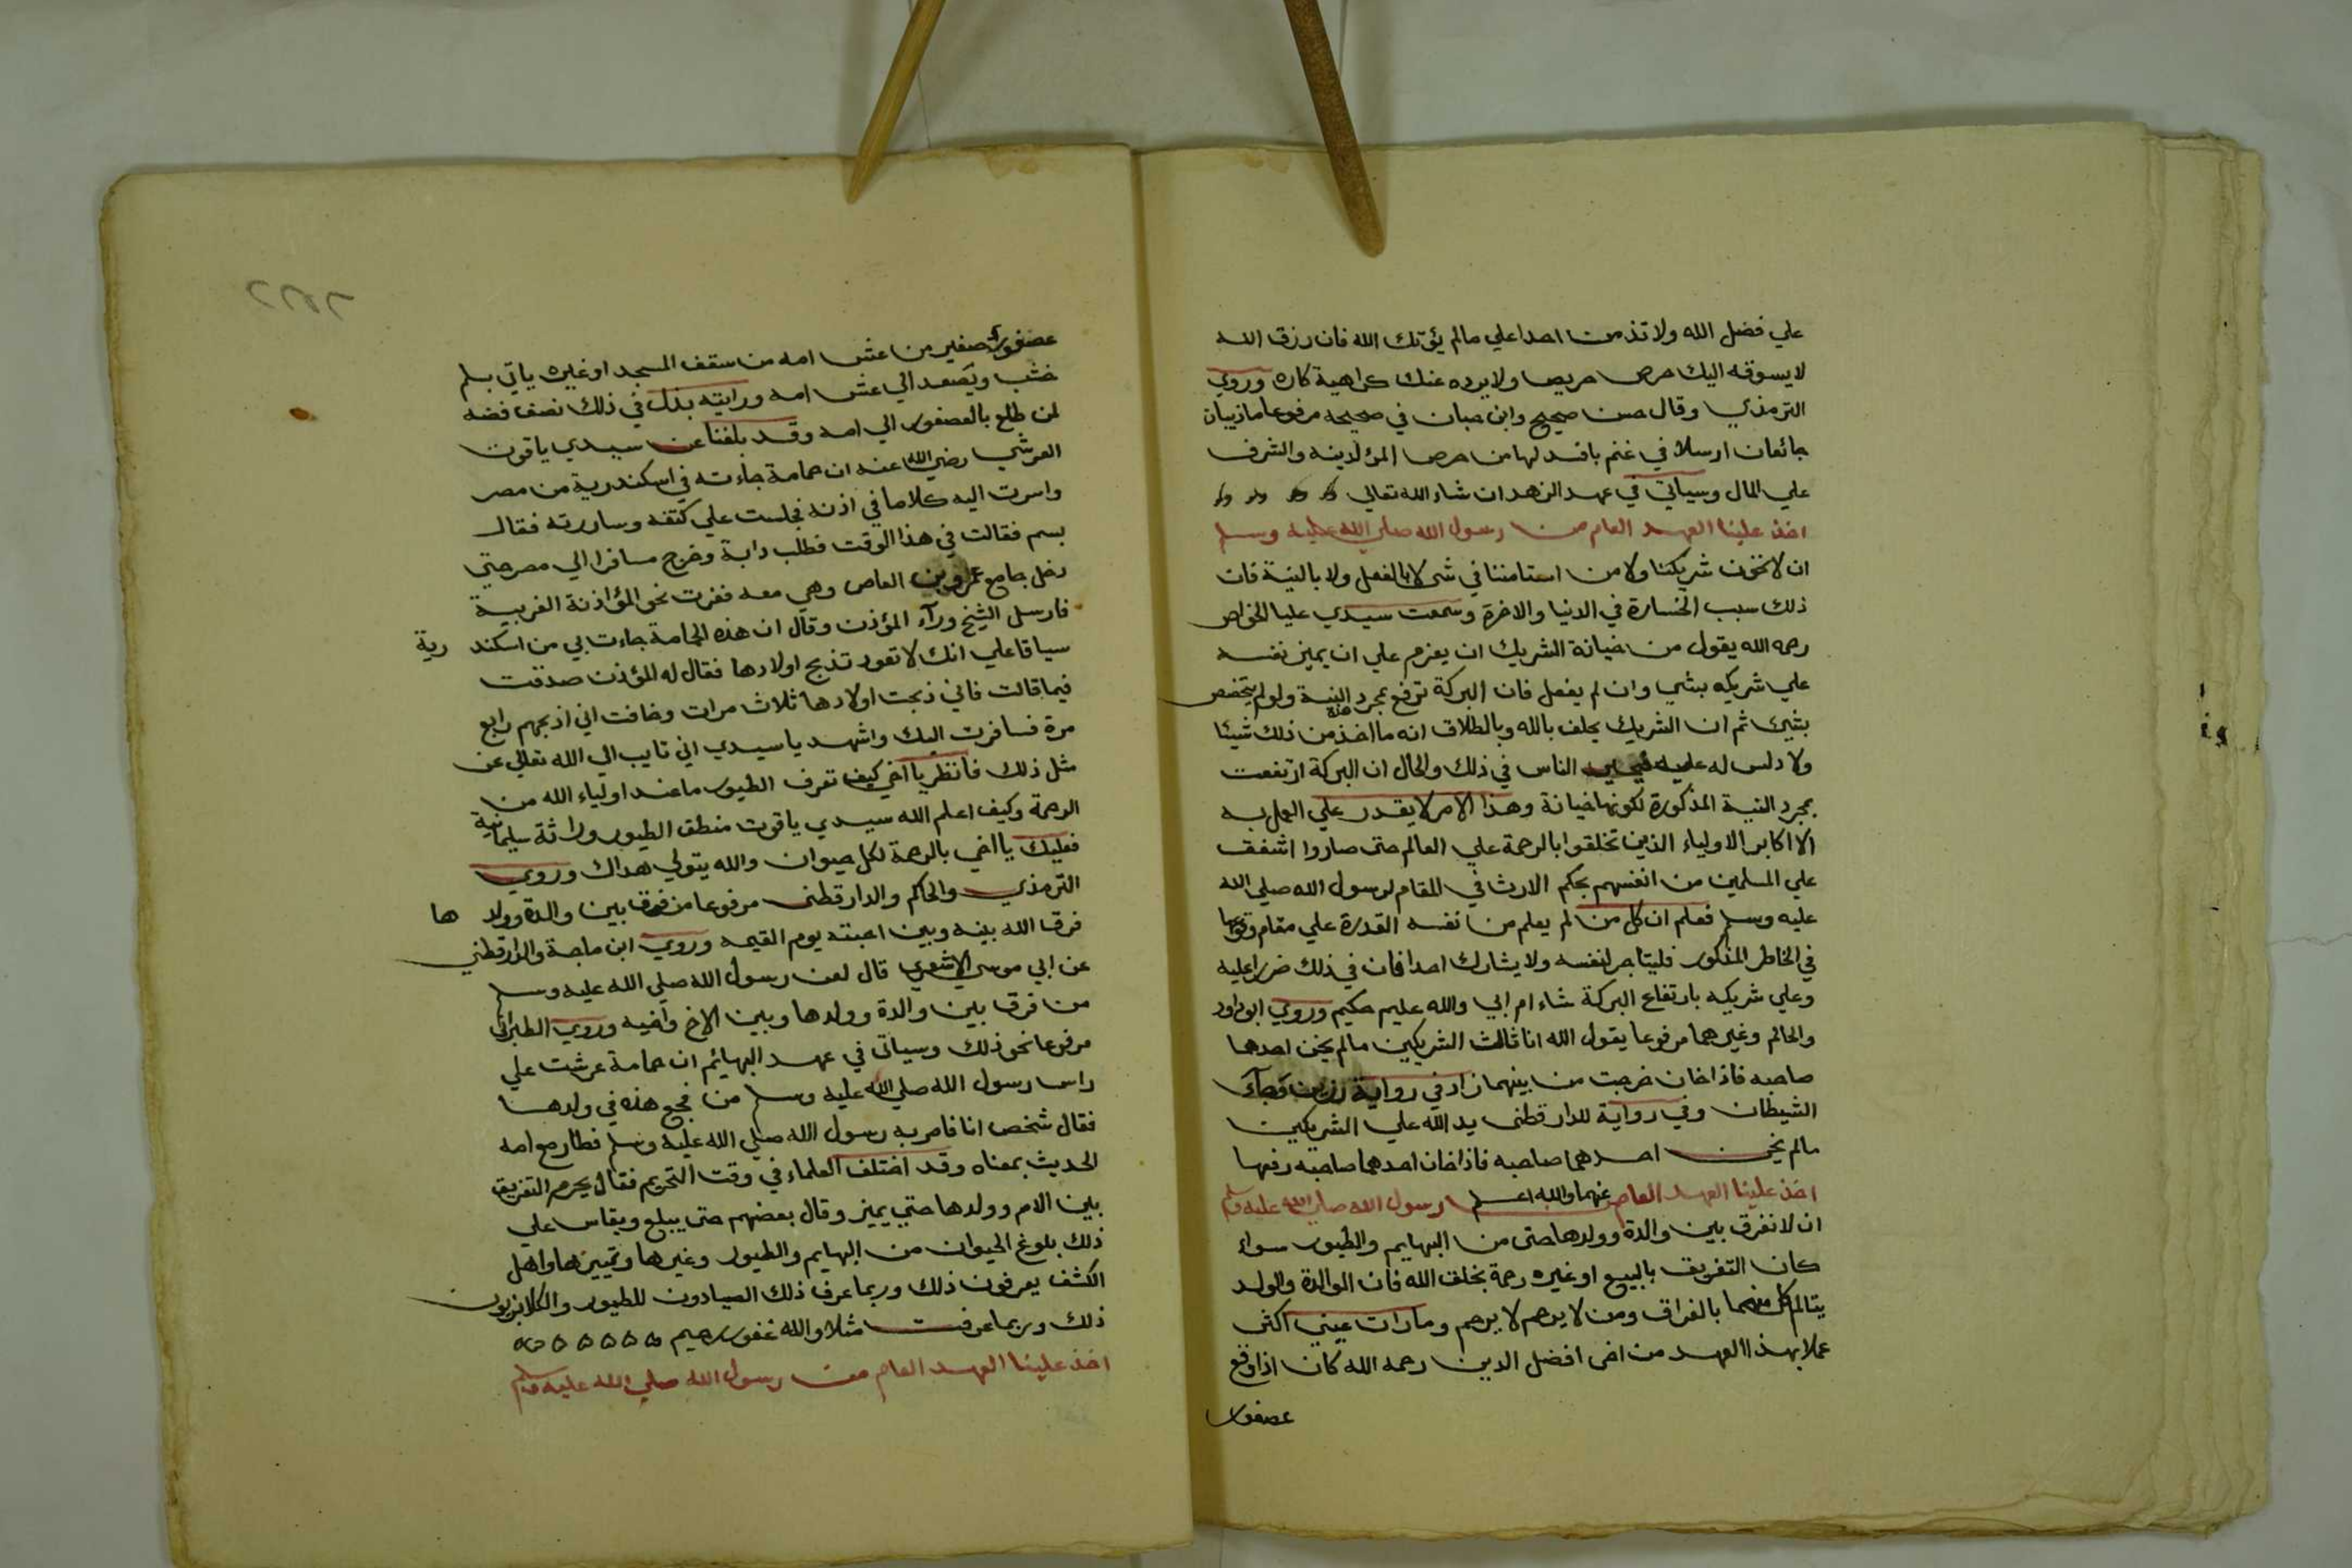 علي فضل الله ولا تذمن احدا علي مالم يؤتك الله فان رزق الله
لا يسوقه اليك حرص حريص ولا يرده عنك كراهية كاره وروي
الترمذي وقال حسن صحيح وابن حبان في صحيحه مرفوعا ماذيبان
جائعان ارسلا في غنم بافسد لها من حرص المرء لدينه والشرف
علي المال وسياتي في عهد الزهد ان شاء الله تعالي
اخذ علينا العهد العام من رسول الله صلي الله عليه وسلم
ان لا نخون شريكنا ولا من استامننا في شي لا بالفعل ولا بالنية فان
ذلك سبب الخسارة في الدنيا والاخرة وسمعت سيدي عليا الخواص
رحمه الله يقول من خيانة الشريك ان يعزم علي ان يميز نفسه
علي شريكه بشي وان لم يفعل فان البركة ترفع بمجرد هذه النية ولو لم يتخصص
بشيئ ثم ان الشريك يحلف بالله وبالطلاق انه ما اخذ من ذلك شيئا
ولا دلس له عليه الناس في ذلك والحال ان البركة ارتفعت
بمجرد النية المذكورة لكونها خيانة وهذا الامر لا يقدر علي العمل به
الا اكابر الاولياء الذين تخلقوا بالرحمة علي العالم حتى صاروا اشفق
علي المسلمين من انفسهم بحكم الارث في المقام لرسول الله صلي الله
عليه وسلم فعلم ان كل من لم يعلم من نفسه القدرة علي مقام وقوعها
في الخاطر المذكور فليتاجر لنفسه ولا يشارك احدا فان في ذلك ضررا عليه
وعلي شريكه بارتفاع البركة شاء ام ابي والله عليم حكيم وروي ابو داود
والحاكم وغيرهما مرفوعا يقول الله انا ثالث الشريكين مالم يخن احدهما
صاحبه فاذا خان خرجت من بينهما زاد في رواية رزين وجاء
الشيطان وفي رواية للدارقطنى يد الله علي الشريكين
مالم يخن احدهما صاحبه فاذا خان احدهما صاحبه رفعها
عنهما والله اعلم اخذ علينا العهد العام رسول الله صلي الله عليه وسلم
ان لا نفرق بين والدة وولدها حتى من البهايم والطيور سواء
كان التفريق بالبيع او غيره رحمة بخلق الله فان الوالدة والولد
يتالم كل منهما بالفراق ومن لا يرحم لا يرحم وما رات عيني اكثر
عملا بهذا العهد من اخى افضل الدين رحمه الله كان اذا وقع
عصفور
عصفور صغير من عش امه من سقف المسجد او غيره ياتي بسلم
خشب ويصعد الي عش امه ورايته بذل في ذلك نصف فضه
لمن طلع بالعصفور الي امه وقد بلغنا عن سيدي ياقوت
العرشي رضي الله عنه ان حمامة جاءته في اسكندرية من مصر
واسرت اليه كلاما في اذنه فجلست علي كتفه وساررته فقال
بسم فقالت في هذا الوقت فطلب دابة وخرج مسافرا الي مصر حتي
دخل جامع عمرو بن العاص وهي معه ففرت نحو المؤاذنة الغربية
فارسل الشيخ ورآء المؤذن وقال ان هذه الحمامة جاءت بي من اسكندرية
سياقا علي انك لا تعود تذبح اولادها فقال له المؤذن صدقت
فيما قالت فاني ذبحت اولادها ثلاث مرات وخافت اني اذبحهم رابع
مرة فسافرت اليك واشهد يا سيدي اني تايب الي الله تعالي عن
مثل ذلك فانظر يا اخي كيف تعرف الطيور ما عند اولياء الله من
الرحمة وكيف اعلم الله سيدي ياقوت منطق الطيور وراثة سليمانية
فعليك يا اخي بالرحمة لكل حيوان والله يتولي هداك وروي
الترمذي والحاكم والدارقطنى مرفوعا من فرق بين والدة وولدها
فرق الله بينه وبين احبته يوم القيمه وروي ابن ماجة والدارقطني
عن ابي موسي الاشعري قال لعن رسول الله صلي الله عليه وسلم
من فرق بين والدة وولدها وبين الاخ واخيه وروي الطبراني
مرفوعا نحو ذلك وسياتى في عهد البهائم ان حمامة عرشت علي
راس رسول الله صلي الله عليه وسلم من فجع هذه في ولدها
فقال شخص انا فامر به رسول الله صلي الله عليه وسلم فطار مع امه
الحديث بمعناه وقد اختلف العلماء في وقت التحريم فقال يحرم التفريق
بين الام وولدها حتي يميز وقال بعضهم حتى يبلغ ويقاس علي
ذلك بلوغ الحيوان من البهايم والطيور وغيرها وتمييزها واهل
الكشف يعرفون ذلك وربما عرف ذلك الصيادون للطيور والكلابزيون
ذلك وربما عرفت مثلا والله غفور رحيم
اخذ علينا العهد العام من رسول الله صلي الله عليه وسلم